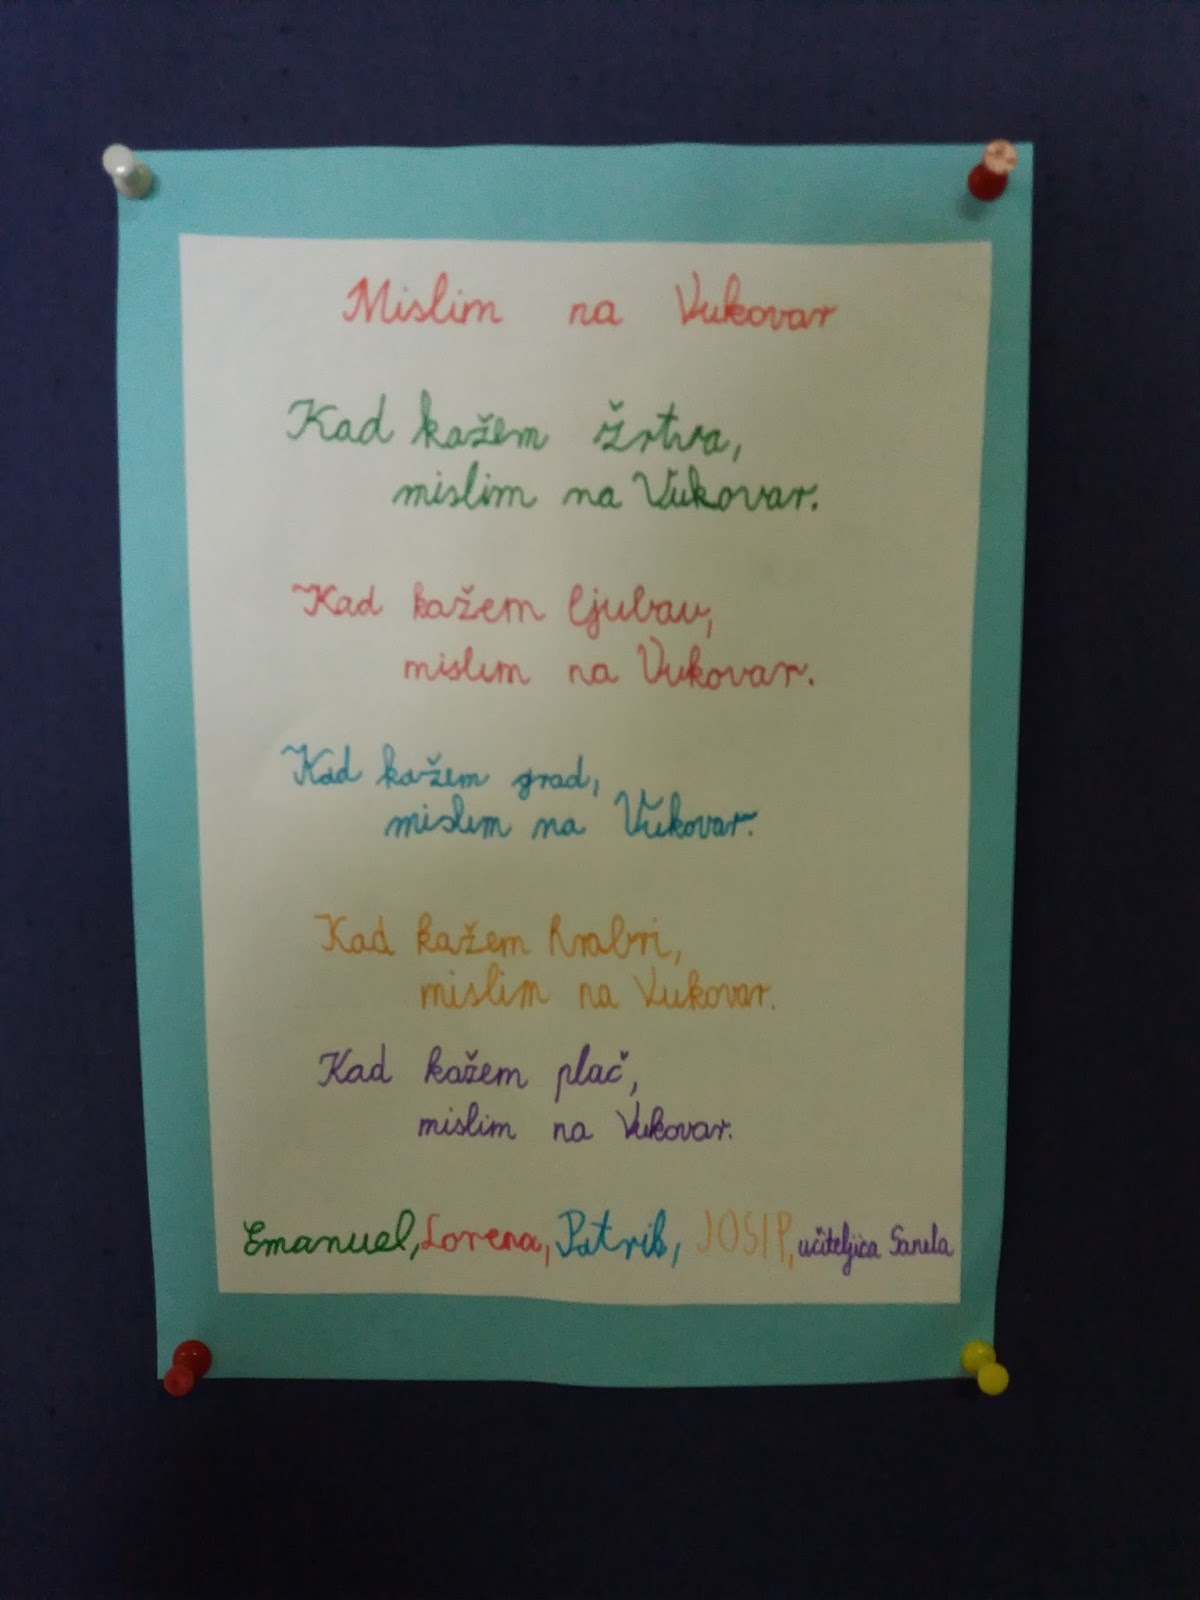 Mislim na Vukovar
Kad kažem žrtva,
mislim na Vukovar.
Kad kažem ljubav,
mislim na Vukovar.
Kad kažem grad,
mislim na Vukovar.
Kad kažem hrabri,
mislim na Vukovar.
Kad kažem plač,
mislim na Vukovar.
Emanuel, Lorena, Patrik, JOSIP, učiteljica Sanela